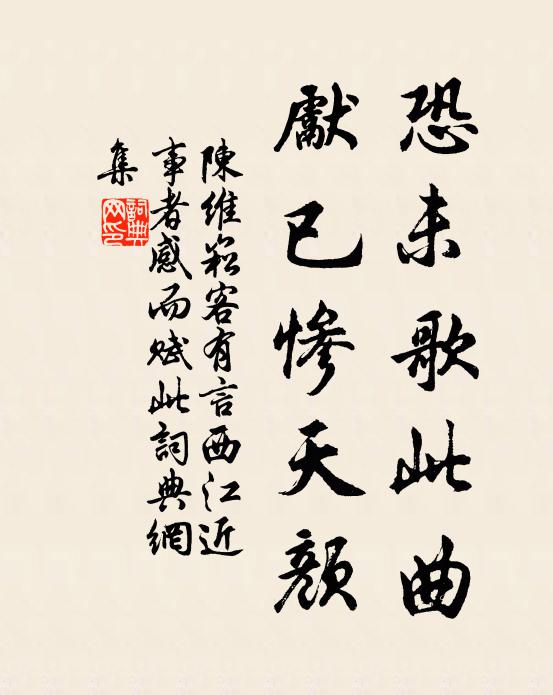 恐未歌此曲
獻已慘天顏
陳維崧客有言西江近
事者感而賦此詞典網
集
詞典
网印